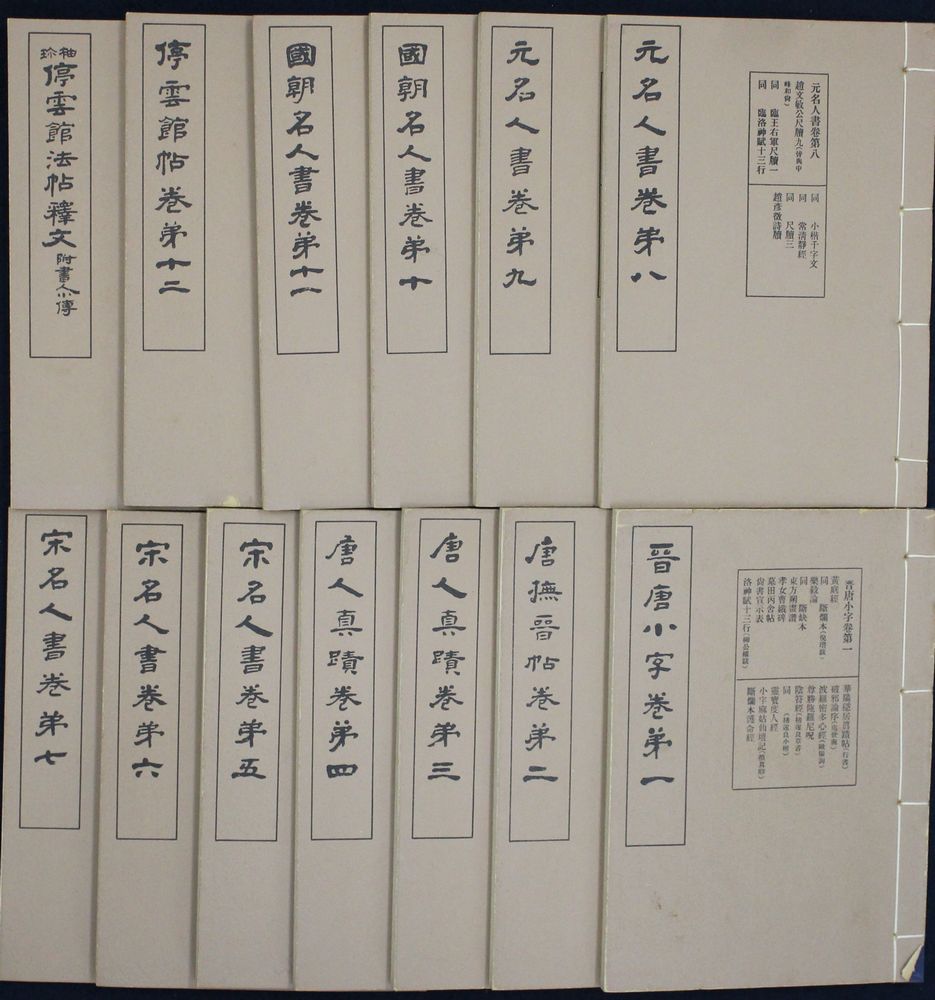 元名人書卷第八
元名人書卷第八
趙文敏公尺牘九(皆與中峰和尚)
同 臨王右軍尺牘一
同 臨洛神賦十三行
同 小楷千字文
同 常清靜經
同 尺牘三
趙彥徵詩牘
元名人書卷第九
國朝名人書卷第十
國朝名人書卷第十一
停雲館帖卷第十二
袖珍停雲館法帖釋文 附書人小傳
晉唐小字卷第一
晉唐小字卷第一
黃庭經
同 斷爛本
樂毅論
同 斷缺本
東方朔畫讚
孝女曹娥碑
墓田丙舍帖
尙書宣示表
洛神賦十三行(柳公權跋)
華陽隱居眞蹟帖(行書)
破邪論序(虞世南)
波羅密多心經(歐陽詢)
尊勝陁羅尼呪
陰符經(褚遂良草書)
同 (褚遂良小楷)
靈寶度人經
小字麻姑仙壇記(顏眞卿)
斷爛本護命經
唐撫晉帖卷第二
唐人真蹟卷第三
唐人真蹟卷第四
宋名人書卷第五
宋名人書卷第六
宋名人書卷第七